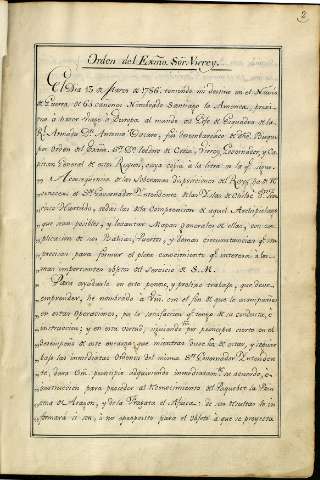 2
Orden del Exmo. Sor. Virrey.
El Dia 13 de Marzo de 1786. teniendo mi destino en el Navio
de Guerra, de 63 cañones Nombrado Santiago la America, proxi-
mo à hacer viage à Europa al mando del Gefe de Esquadra de la
Rl. Armada Dn. Antonio Bacaro, fui desembarcado de dho. Buque
por Orden del Exmo. Sr. Dn. Teodoro de Croix, Virrey, Governador, y Ca-
pitan General de estos Reynos, cuya copia à la letra es la qe. sigue.
de las Soberanas disposiciones del Rey, ha de re-
conocer el Sr. Governador Yntendente de las Yslas de Chiloe Dn. Fran-
cisco Hurtado, todas las de la comprension de aquel Archipielago
que sean posibles, y levantar Mapas generales de ellas, con ex-
plicacion de sus Bahias, Puertos, y demas circunstancias qe.
precisas para formar el pleno conocimiento qe. interesa à los
mas importantes objetos del Servicio de S. M.
Para ayudarle en este penoso, y prolixo trabajo, que deve
emprender, he nombrado à Vm. con el fin de que le acompañe
en estas Operaciones, pr. la satisfaccion qe. tengo de su conducta, è
instruccion; y en esta virtud, siguiendo por principio cierto en el
desempeño de este encargo, que mientras dure ha de estar, y
bajo las inmediatas Ordenes del mismo Sor. Governador Yntenden-
te, dará Vm. principio adquiriendo inmediatamte. de acuerdo, è
instruccion para proceder al Reconocimiento del Paquebot la Prin-
cesa de Aragon, y de la Fragata el Aguila: de su resultas le in-
formará si son, ò no apropósito para el objeto à que se proyecta